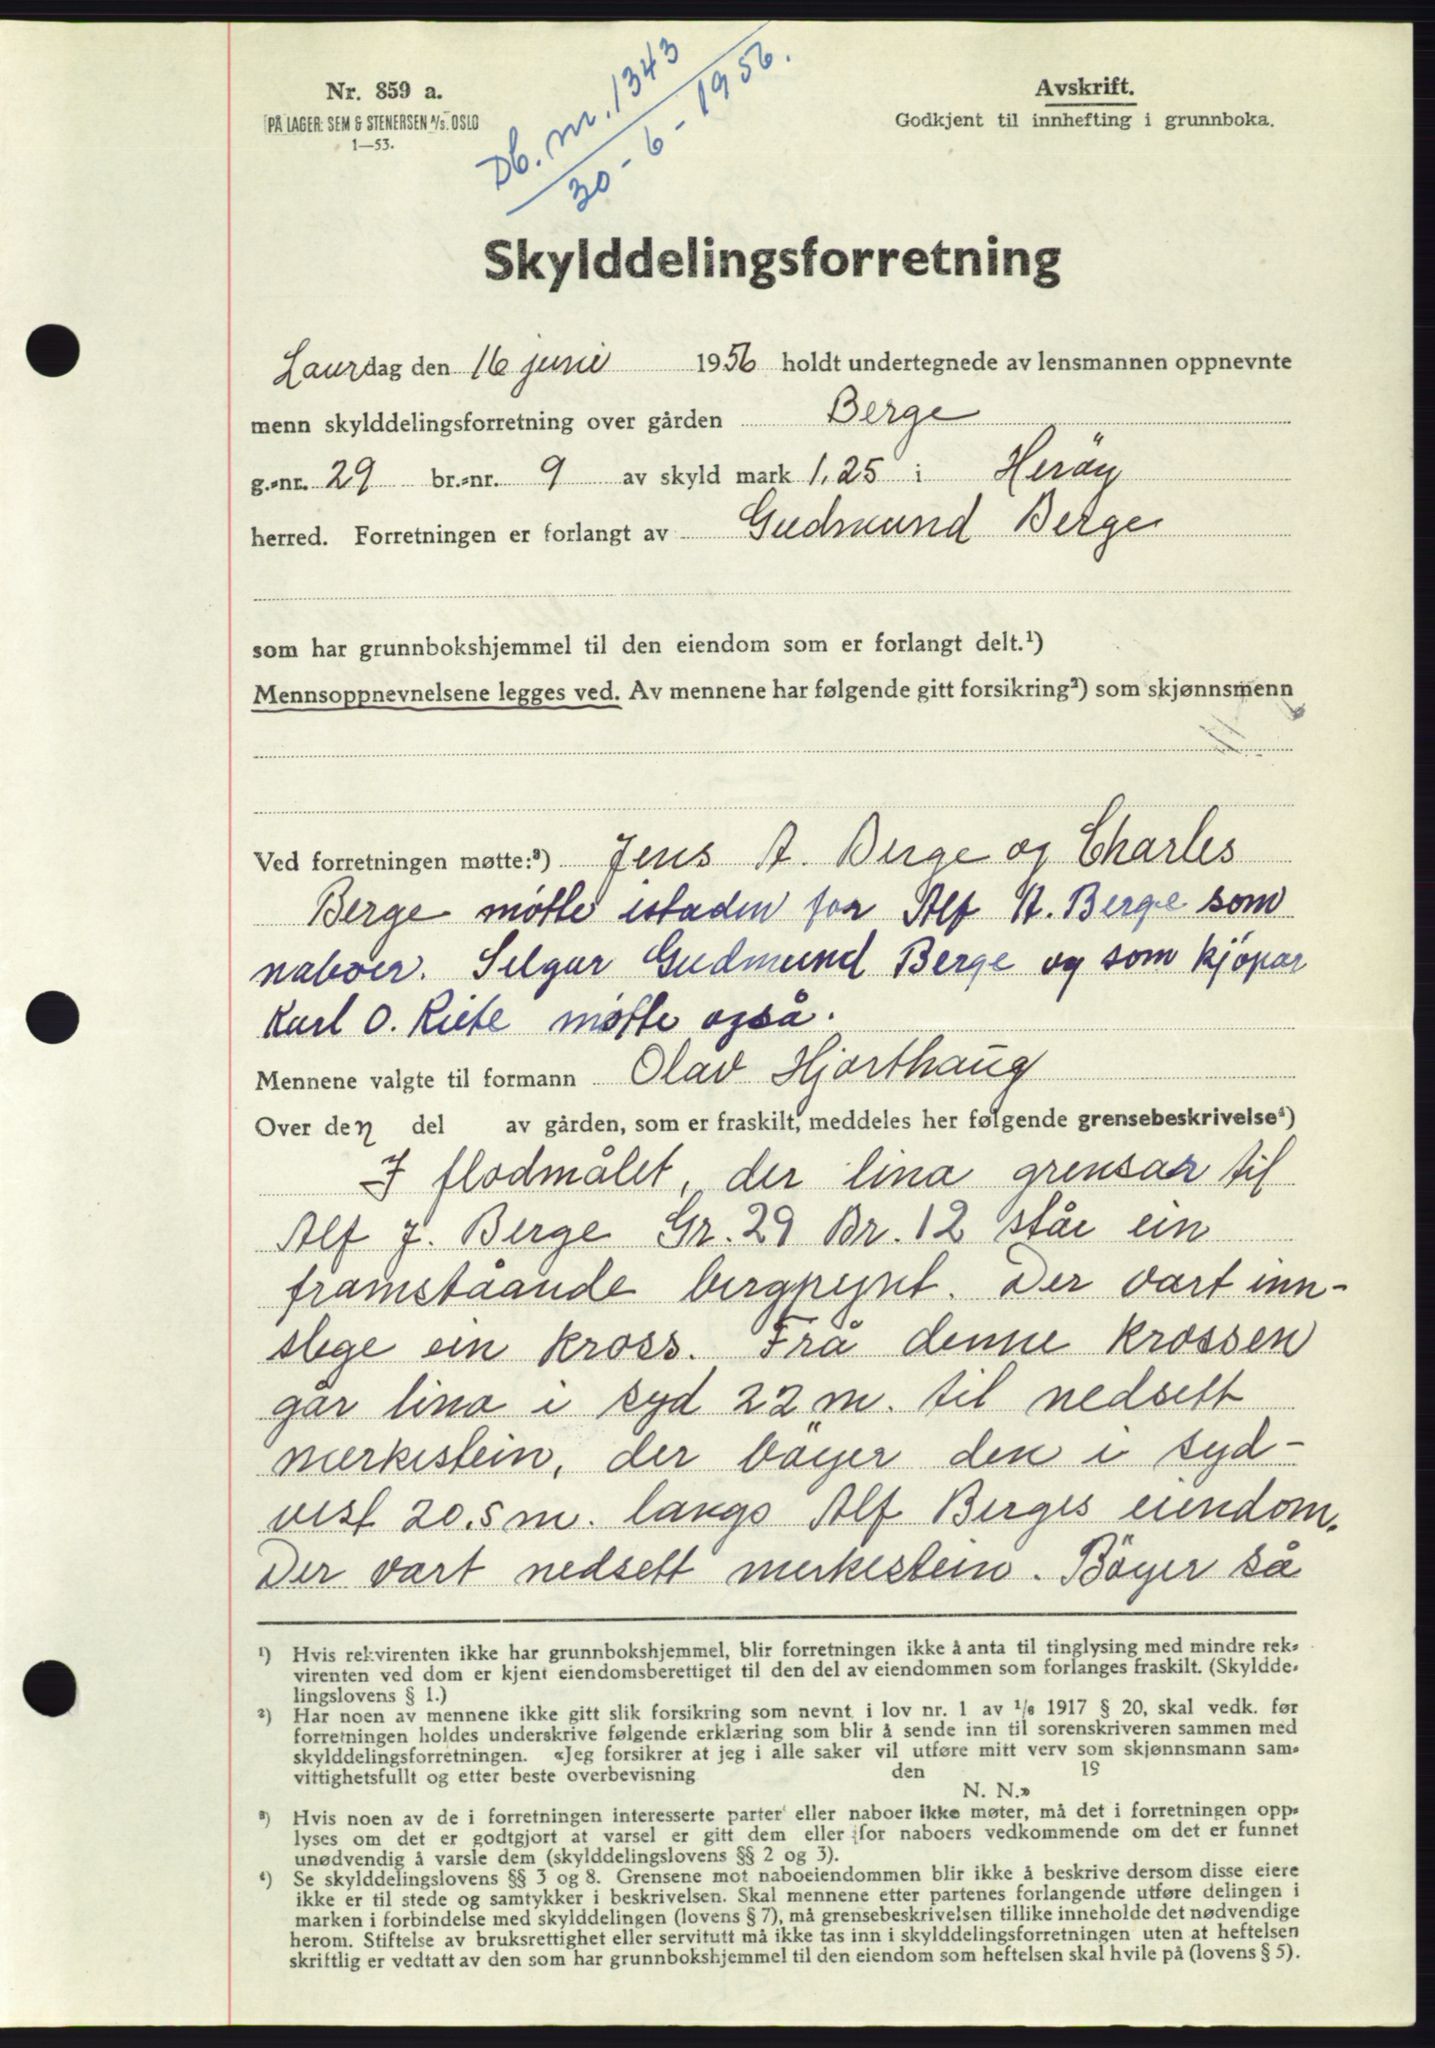 Nr. 859 a.
PÅ LAGER: SEM & STENERSEN A/S. OSLO
1—53.
Db. nr. 1343
30-6-1956.
Avskrift.
Godkjent til innhefting i grunnboka.
Skylddelingsforretning
Laurdag den 16 juni 1956 holdt undertegnede av lensmannen oppnevnte
menn skylddelingsforretning over gården Berge
g.-nr. 29 br.-nr. 9 av skyld mark 1,25 i Heröy
herred. Forretningen er forlangt av Gudmund Berge
som har grunnbokshjemmel til den eiendom som er forlangt delt.¹)
Mennsoppnevnelsene legges ved. Av mennene har følgende gitt forsikring²) som skjønnsmenn
Ved forretningen møtte:³) Jens A. Berge og Charles
Berge møtte istaden for Alf A. Berge som
naboer. Selgar Gudmund Berge og som kjöpar
Karl O. Kiete møtte også.
Mennene valgte til formann Olav Hjorthaug
Over den del av gården, som er fraskilt, meddeles her følgende grensebeskrivelse⁴)
I flodmålet, der lina grensar til
Alf J. Berge Gr. 29 Br. 12 står ein
framståande bergpynt. Der vart inn-
slege ein kross. Frå denne krossen
går lina i syd 22 m. til nedsett
merkestein, der böyer den i syd-
vest 20.5 m. langs Alf Berges eiendom.
Der vart nedsett merkestein. Böyer så
¹) Hvis rekvirenten ikke har grunnbokshjemmel, blir forretningen ikke å anta til tinglysing med mindre rek-
virenten ved dom er kjent eiendomsberettiget til den del av eiendommen som forlanges fraskilt. (Skyldde-
lingslovens § 1.)
²) Har noen av mennene ikke gitt slik forsikring som nevnt i lov nr. 1 av 1/6 1917 § 20, skal vedk. før
forretningen holdes underskrive følgende erklæring som blir å sende inn til sorenskriveren sammen med
skylddelingsforretningen. «Jeg forsikrer at jeg i alle saker vil utføre mitt verv som skjønnsmann sam-
vittighetsfullt og etter beste overbevisning den 19
N. N.»
³) Hvis noen av de i forretningen interesserte parter eller naboer ikke møter, må det i forretningen opp-
lyses om det er godtgjort at varsel er gitt dem eller for naboers vedkommende om det er funnet
unødvendig å varsle dem (skylddelingslovens §§ 2 og 3).
⁴) Se skylddelingslovens §§ 3 og 8. Grensene mot naboeiendommen blir ikke å beskrive dersom disse eiere
ikke er til stede og samtykker i beskrivelsen. Skal mennene etter partenes forlangende utføre delingen i
marken i forbindelse med skylddelingen (lovens § 7), må grensebeskrivelsen tillike inneholde det nødvendige
herom. Stiftelse av bruksrettighet eller servitutt må ikke tas inn i skylddelingsforretningen uten at heftelsen
skriftlig er vedtatt av den som har grunnbokshjemmel til den eiendom som heftelsen skal hvile på (lovens § 5).